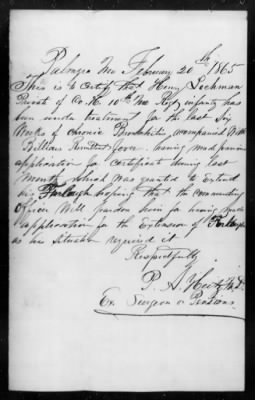 Palmyra Mo February 20th 1865
This is to Certify that Henry Lochman
Private of Co. M. 10th Mo Regt infantry has
been under treatment for the last Six
Weeks of Chronic Bronchitis accompanied With
Billious Remittent fever. having mad previous
application for Certificat during last
Month which was granted to Extend
his Furlough hoping that the commanding
officer Will pardon him for having made
application for the Extension of Furlough
as his Situation required it
Respectfully
P. A. M.D.
Ex. Surgeon on Pensions